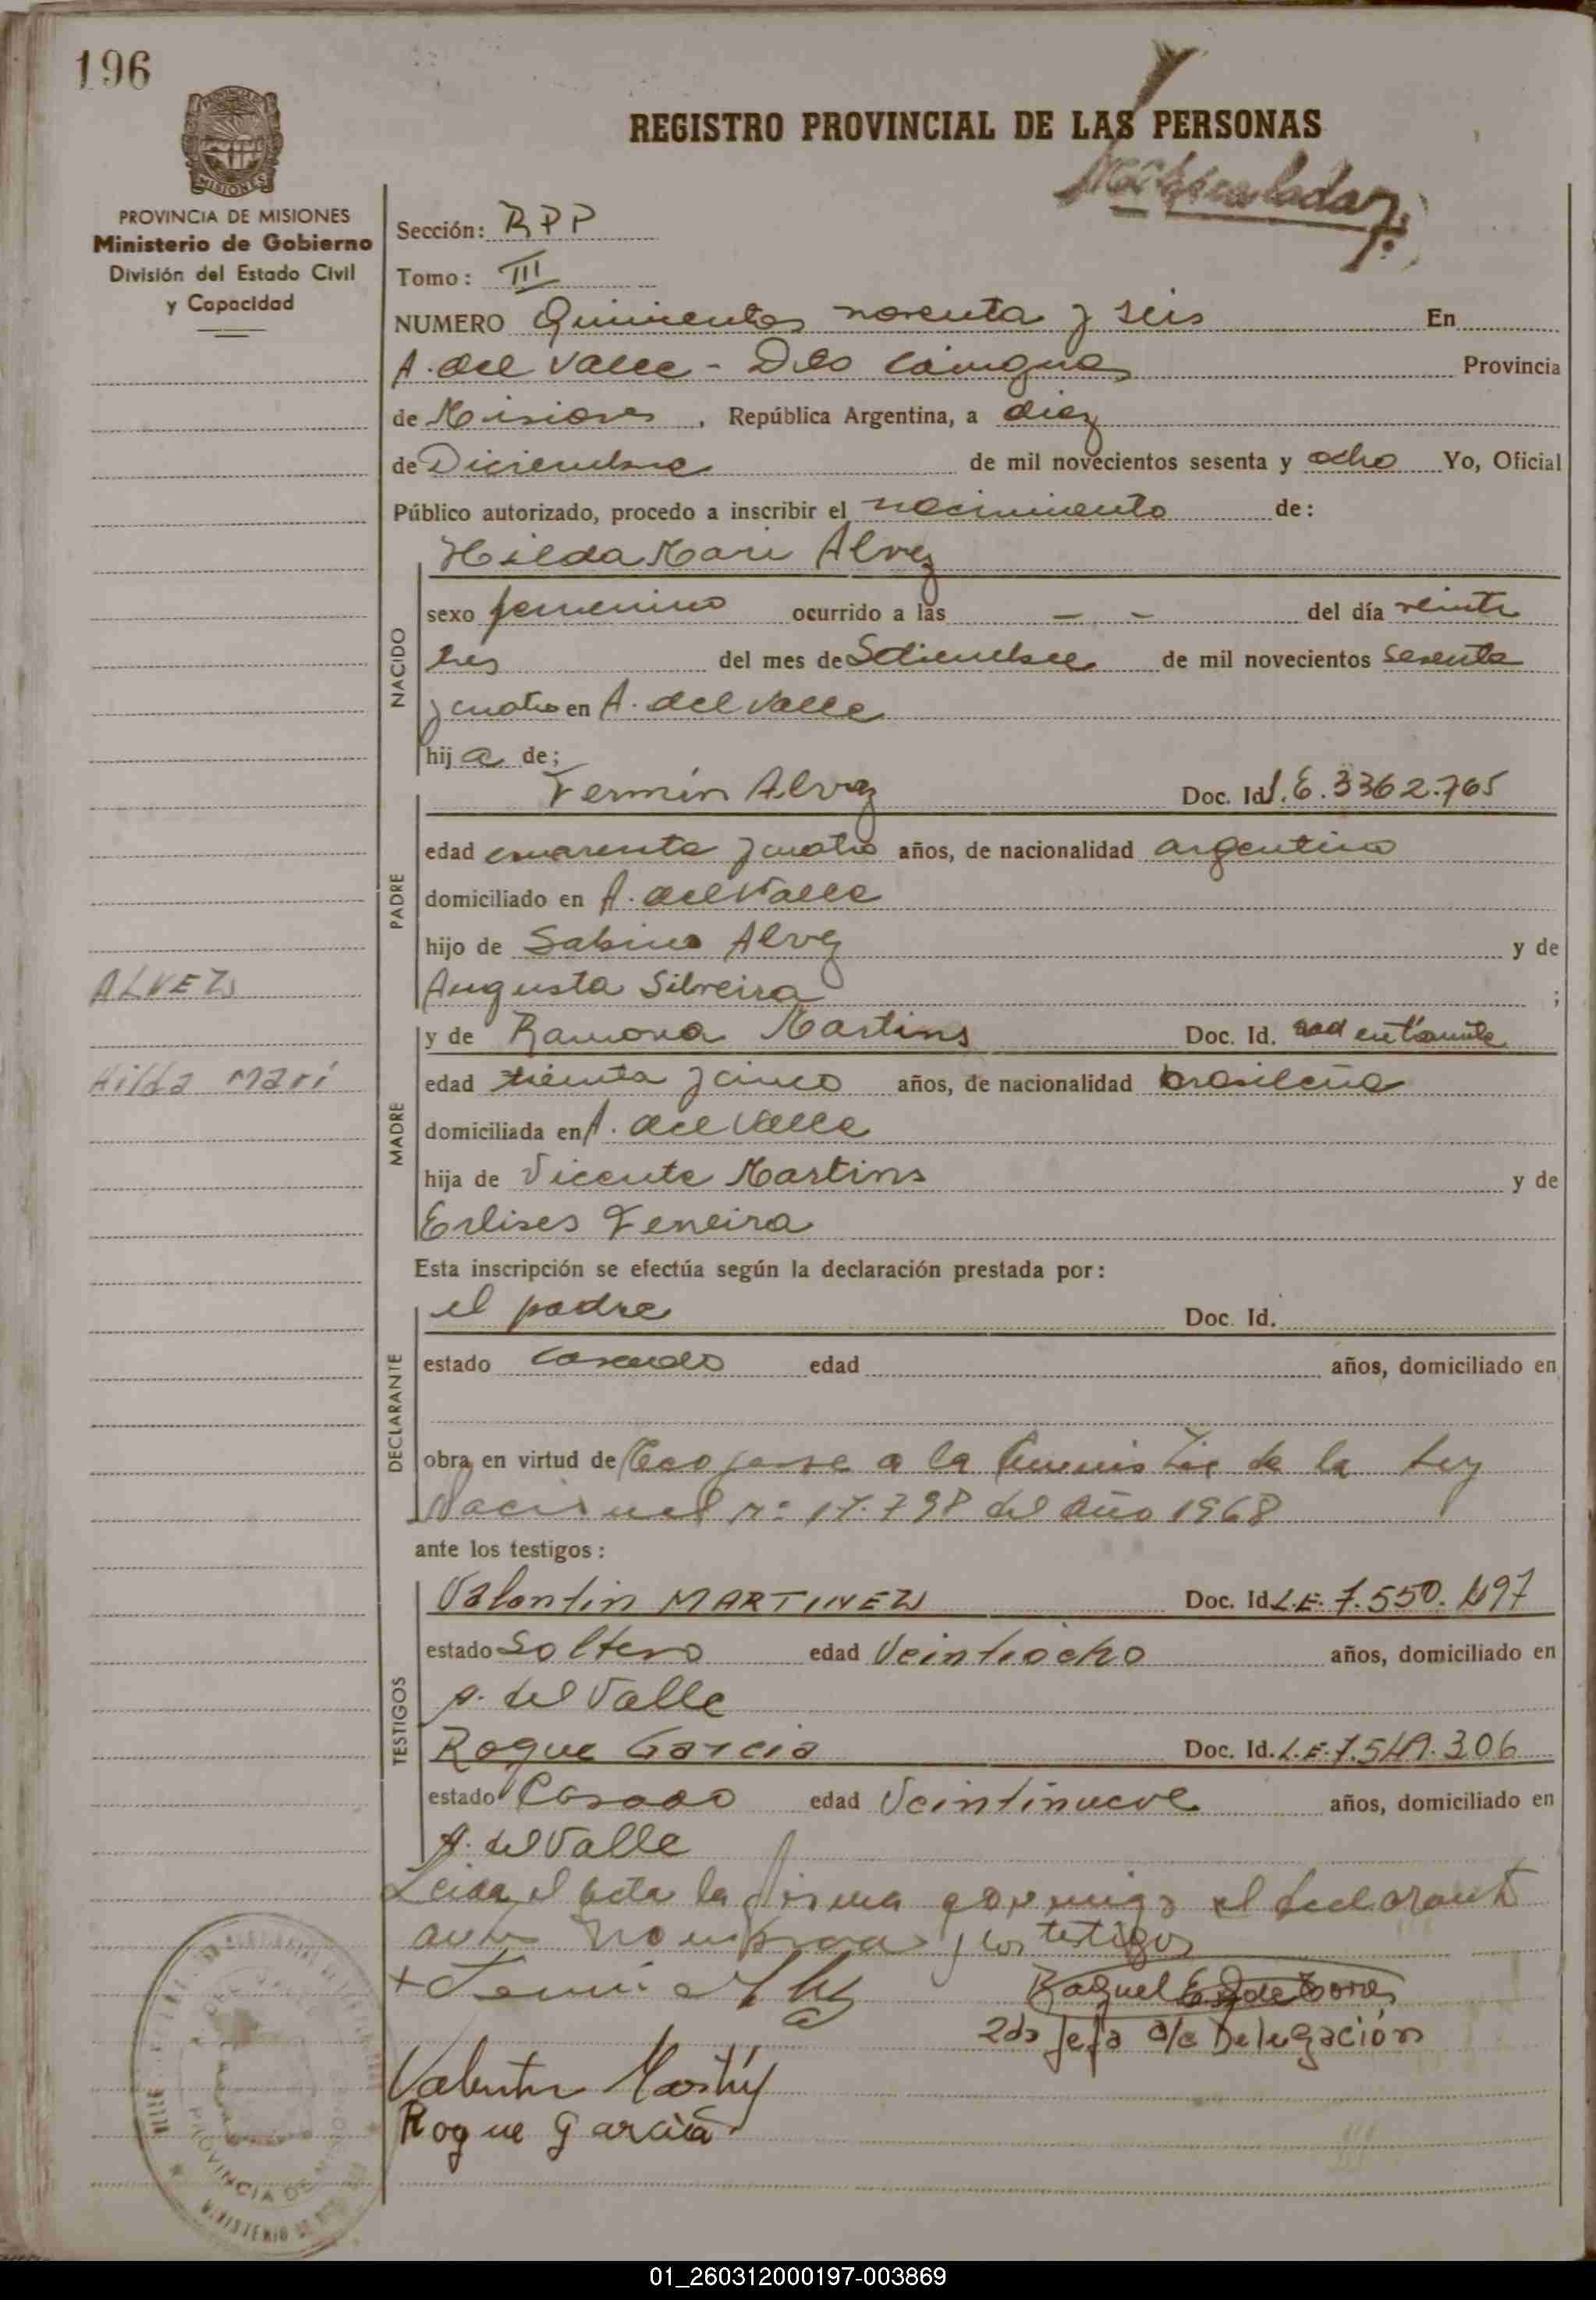 196
REGISTRO PROVINCIAL DE LAS PERSONAS
PROVINCIA DE MISIONES
Ministerio de Gobierno
División del Estado Civil
y Capacidad
Sección: RPP
Tomo: III
NUMERO Quinientos noventa y seis En
A. del Valle - Dto Cainguas Provincia
de Misiones, República Argentina, a diez
de Diciembre de mil novecientos sesenta y ocho Yo, Oficial
Público autorizado, procedo a inscribir el nacimiento de:
Hilda Mari Alvez
NACIDO
sexo femenino ocurrido a las - - del día veinti
tres del mes de de mil novecientos sesenta
y cuatro en A. del Valle
hija de;
PADRE
Fermín Alvez Doc. Id L.E. 3362.765
edad cuarenta y cuatro años, de nacionalidad argentino
domiciliado en A. del Valle
hijo de Sabino Alvez y de
Augusta Silveira ;
ALVEZ
Hilda Mari
MADRE
y de Ramona Martins Doc. Id. rad en tramite
edad treinta y cinco años, de nacionalidad brasileña
domiciliada en A. del Valle
hija de Vicente Martins y de
Erlises
Esta inscripción se efectúa según la declaración prestada por:
DECLARANTE
el padre Doc. Id.
estado casado edad años, domiciliado en
obra en virtud de Acogerse a la Amnistia de la Ley
Nacional nº 17.798 del año 1968
ante los testigos:
TESTIGOS
Valentin MARTINEZ Doc. Id L.E. 7.550.
estado Soltero edad Veintiocho años, domiciliado en
A. del Valle
Roque Garcia Doc. Id. L.E. 306
estado Casado edad Veintinueve años, domiciliado en
A. del Valle
Leida el acta la firma conmigo el declarante
antes nombrado y los testigos
Raquel
2da Jefa a/c Delegación
Roque Garcia
PROVINCIA DE MISIONES
MINISTERIO DE
01_260312000197-003869